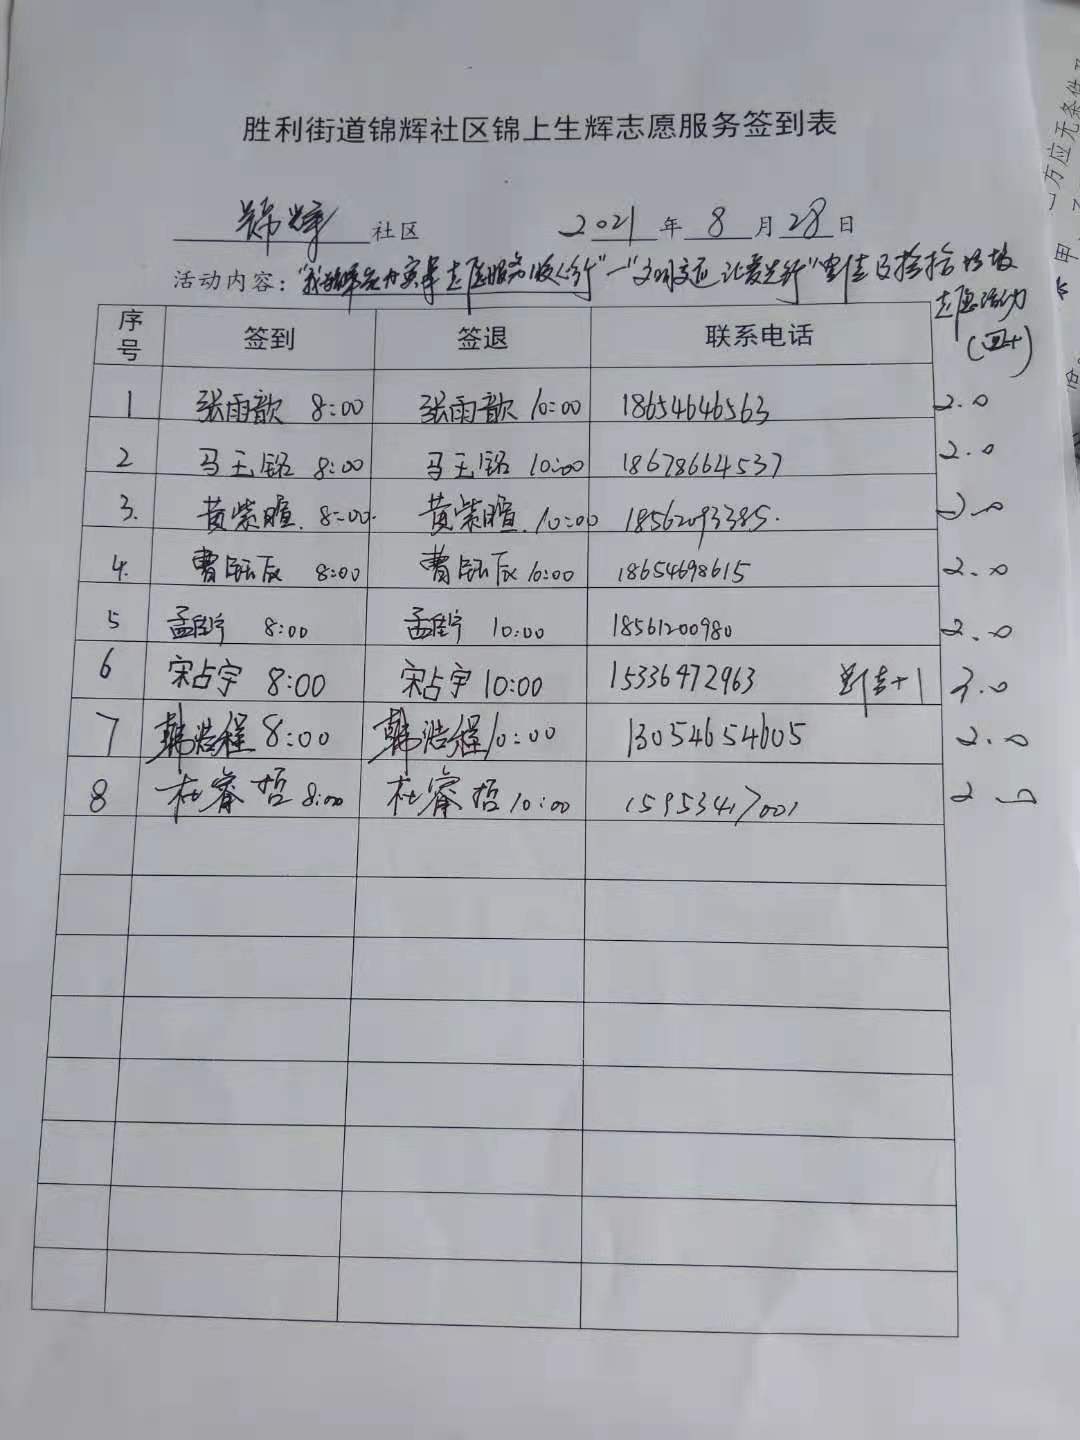 胜利街道锦辉社区锦上生辉志愿服务签到表
锦辉 社区 2021 年 8 月 28 日
活动内容："我为群众办实事 志愿服务 "一"文明交通 让爱先行" 宣传及捡拾垃圾
志愿活动
(四十)
序号 签到 签退 联系电话
1 张雨歆 8:00 张雨歆 10:00 18654646563 2.0
2 马玉铭 8:00 马玉铭 10:00 18678664537 2.0
3. 黄紫暄. 8:00. 黄紫暄. 10:00 18562093385. 2.0
4. 曹钰辰 8:00 曹钰辰 10:00 18654698615 2.0
5 孟 8:00 孟 10:00 18561200980 2.0
6 宋占宇 8:00 宋占宇 10:00 15336472963 +1 3.0
7 韩浩程 8:00 韩浩程 10:00 13054654605 2.0
8 杜睿哲 8:00 杜睿哲 10:00 15953417001 2.0
方应无条件
甲